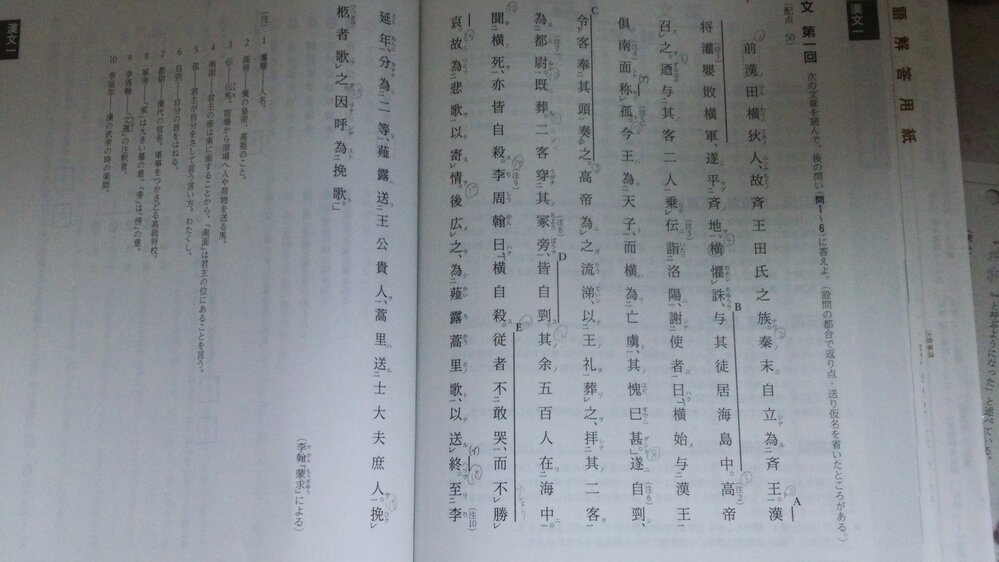 語解答用紙
漢文一
文 第一回 次の文章を読んで、後の問い(問1~6)に答えよ。(設問の都合で返り点・送り仮名を省いたところがある。)
(配点 50)
前漢田横狄人、故斉王田氏之族。秦末自立為斉王。漢
将灌嬰敗横軍、遂平斉地。横懼誅、与其徒居海島中。高帝
召之。迺与其客二人乗伝詣洛陽、謝使者曰、横始与漢王
倶南面称孤。今王為天子、而横為亡虜、其愧已甚。遂自剄、
令客奉其頭奏之。高帝為之流涕、以王礼葬之、拝其二客
為都尉。既葬。二客穿其冢旁、皆自剄。其余五百人在海中。
聞横死、亦皆自殺。李周翰曰、横自殺。従者不敢哭、而不勝
哀。故為悲歌以寄情。後広之、為薤露蒿里歌、以送終。至李
延年、分為二等、薤露送王公貴人、蒿里送士大夫庶人。挽
柩者歌之。因呼為挽歌。」
(李翰『蒙求』による)
(注) 1 灌嬰――人名。
2 高帝――漢の皇帝、高祖のこと。
3 伝――伝馬。宿場から宿場へ人や荷物を送る馬。
4 南面――君主の座は南に面することから、「南面」は君主の位にあることを言う。
5 孤――君主が自分をさして言う言い方。わたくし。
6 自剄――自分の首をはねる。
7 都尉――漢代の官名。軍事をつかさどる高級将校。
8 冢旁――「冢」は大きい墓の意。「旁」は「傍」の意。
9 李周翰――『文選』の注釈者。
10 李延年――漢の武帝の時の楽師。
漢文一